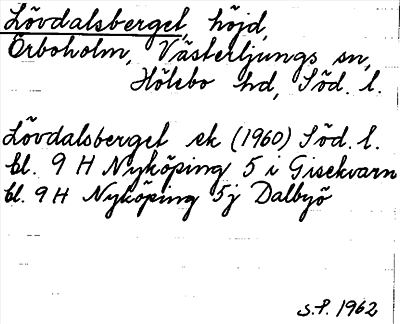 Lövdalsberget, höjd,
Örboholm, Västerljungs sn,
Hölebo hd, Söd. l.
Lövdalsberget ek (1960) Söd. l.
bl. 9 H Nyköping 5 i Gisekvarn
bl. 9 H Nyköping 5j Dalbyö
S.P. 1962